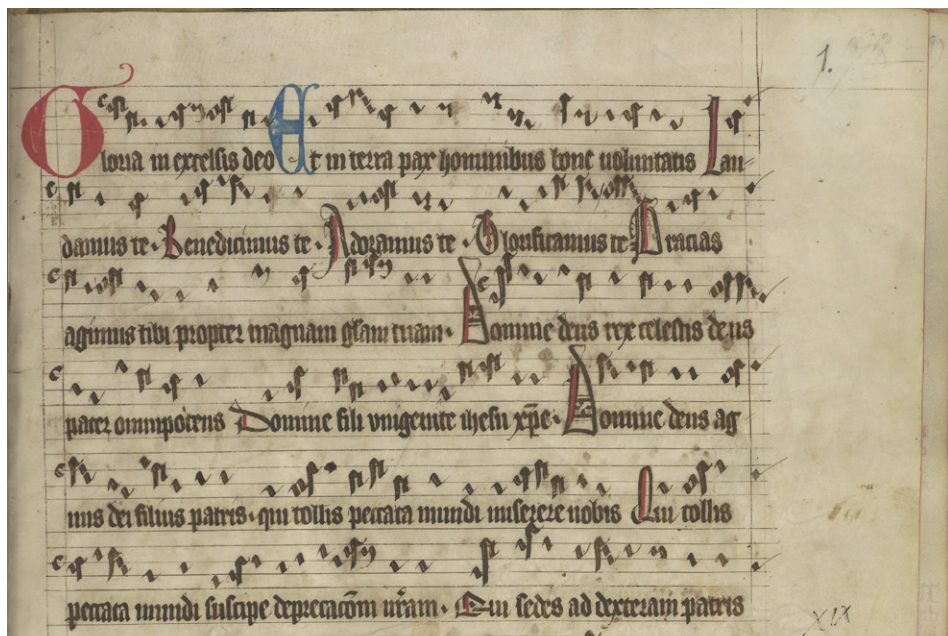 1.
Gloria in excelsis deo Et in terra pax hominibus bone voluntatis Lau
damus te · Benedicimus te · Adoramus te · Glorificamus te Gracias
agimus tibi propter magnam gl̄am tuam · Domine deus rex celestis deus
pater omnipotens Domine fili vnigenite ihesu xp̄e · Domine deus ag
nus dei filius patris · qui tollis peccata mundi miserere nobis Qui tollis
peccata mundi suscipe deprecacōm nr̄am · Qui sedes ad dexteram patris
XIX